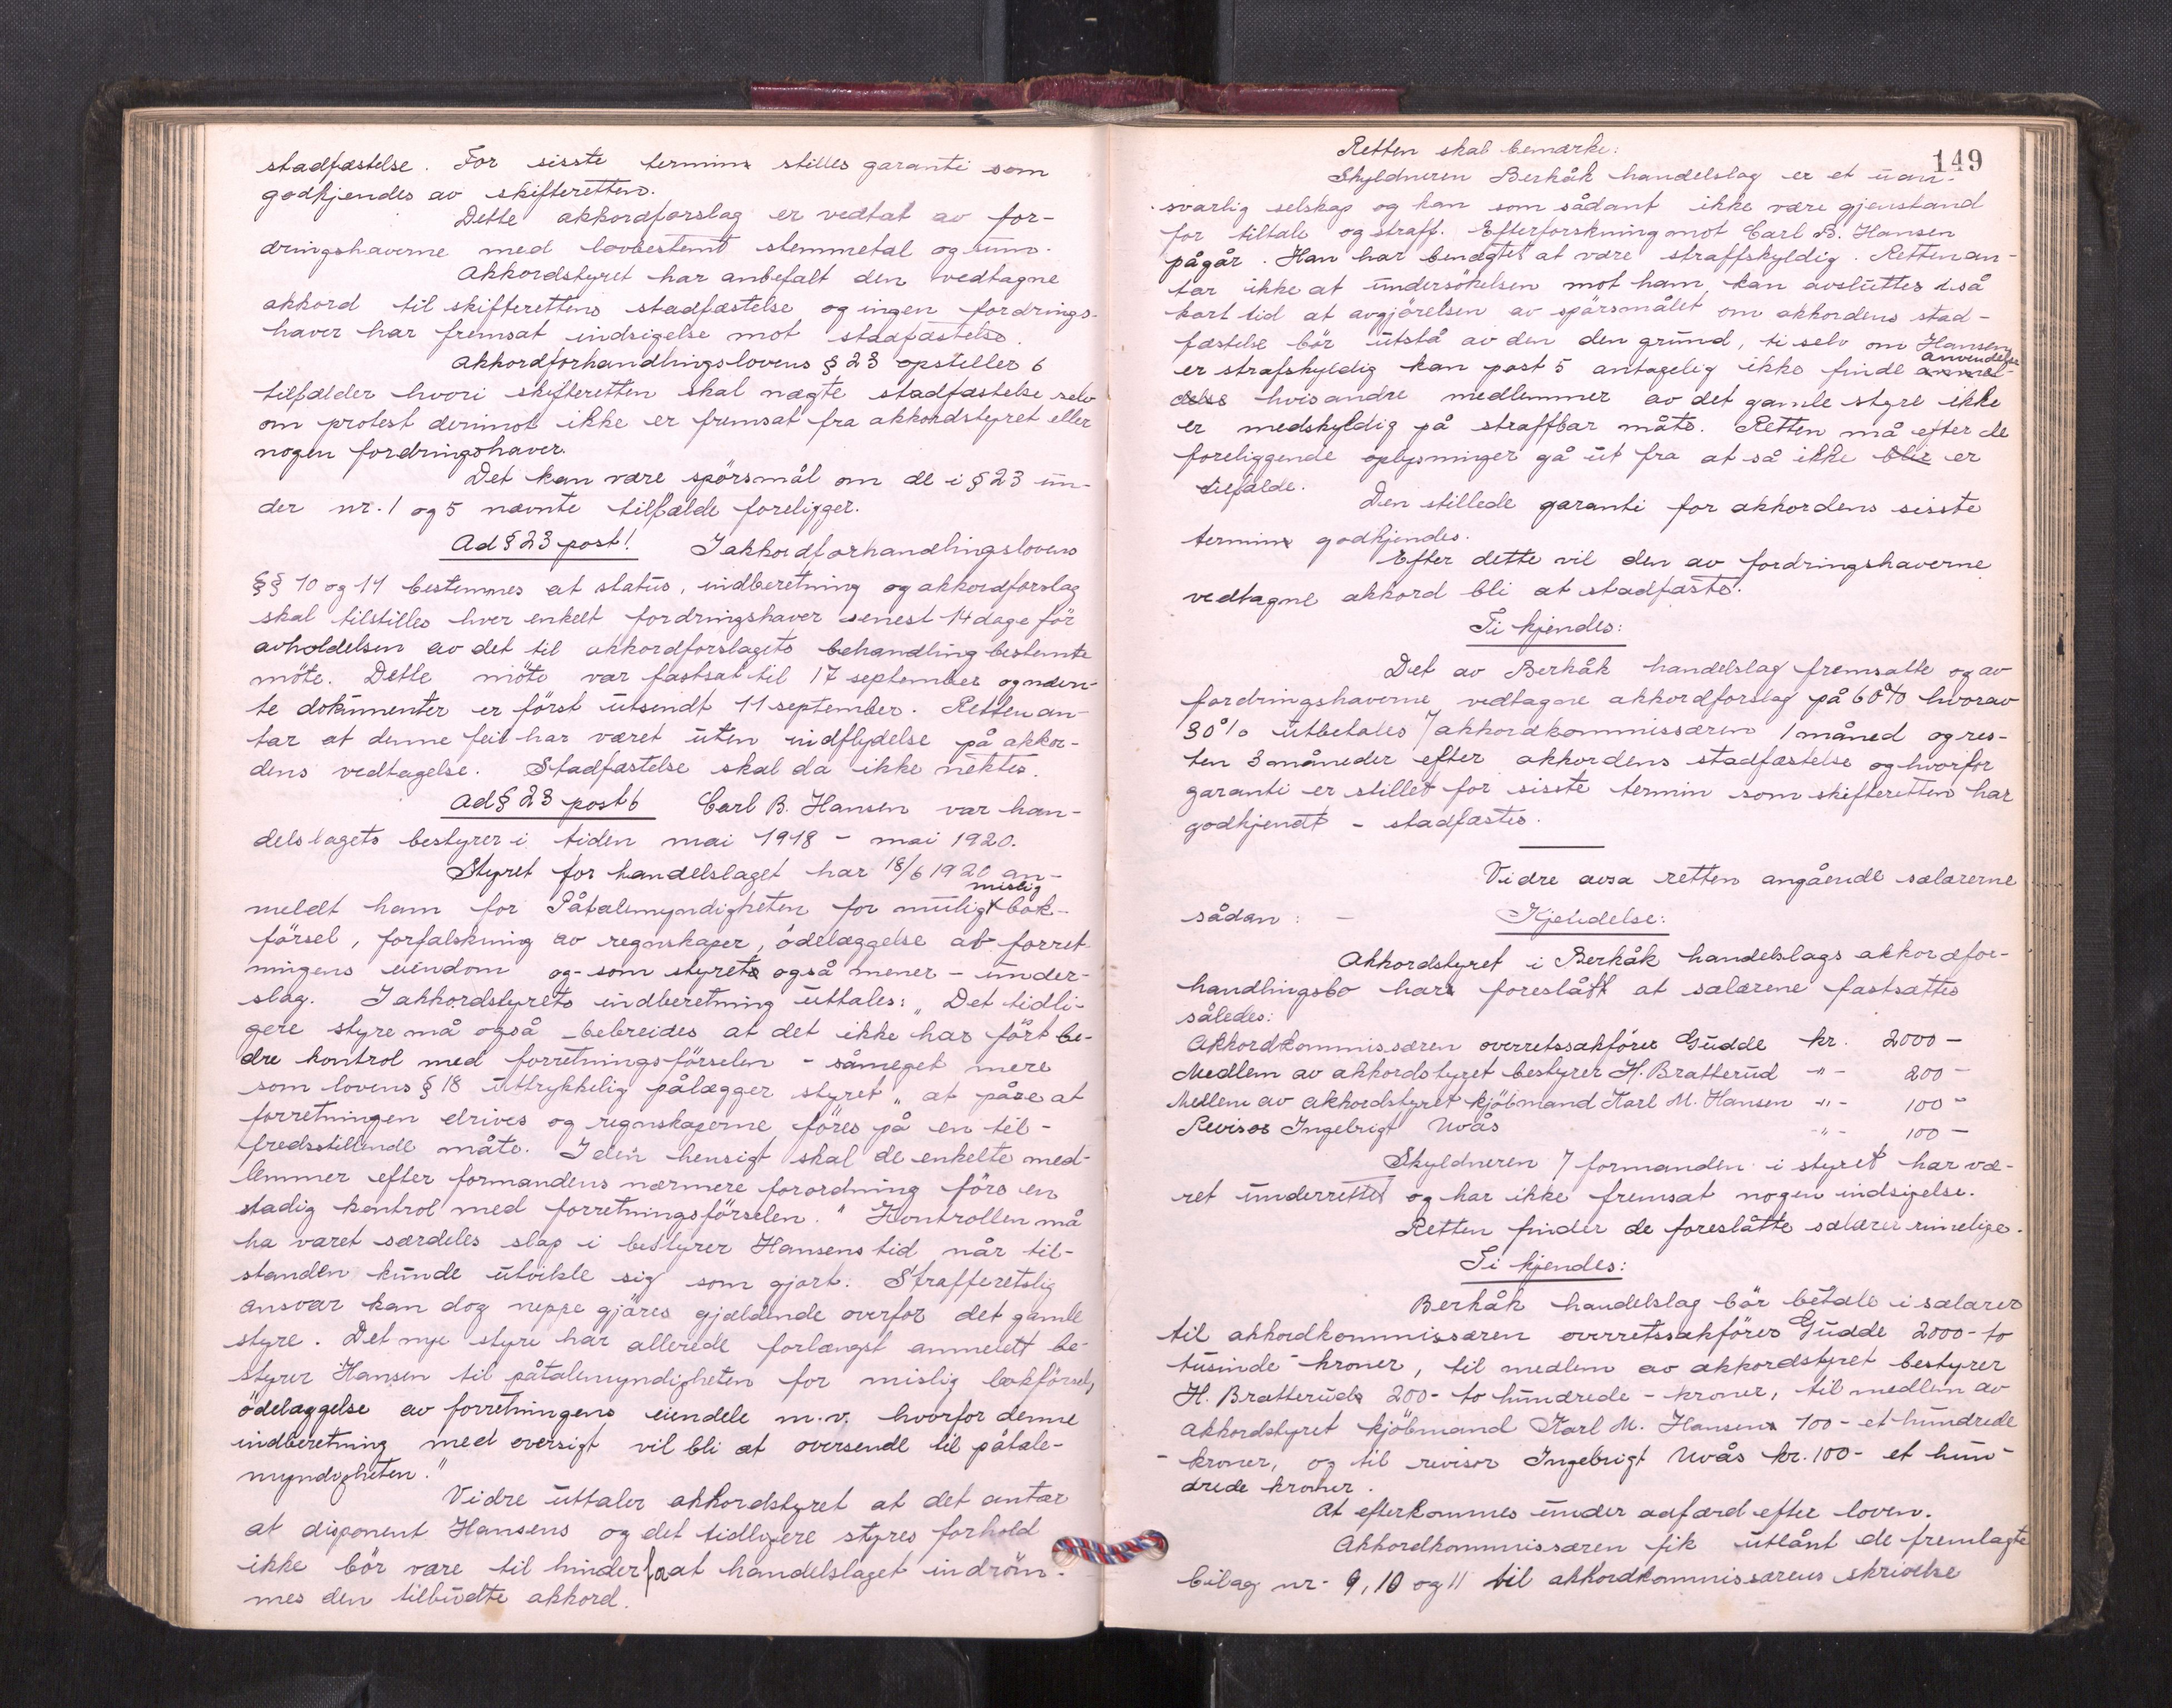 stadfæstelse. For sisste termin stilles garanti som
godkjendes av skifteretten.
Dette akkordforslag er vedtat av for-
dringshaverne med lovbestemt stemmetal og sum.
Akkordstyret har anbefalt den vedtagne
akkord til skifterettens stadfæstelse og ingen fordrings-
haver har fremsat indsigelse mot stadfæstelse.
Akkordforhandlingslovens § 23 opstiller 6
tilfælder hvori skifteretten skal nægte stadfæstelse selv
om protest derimot ikke er fremsat fra akkordstyret eller
nogen fordringshaver.
Det kan være spörsmål om de i § 23 un-
der nr. 1 og 5 nævnte tilfælde foreligger.
Ad § 23 post 1 I akkordforhandlingslovens
§§ 10 og 14 bestemmes at status, indberetning og akkordforslag
skal tilstilles hver enkelt fordringshaver senest 14 dage för
avholdelsen av det til akkordforslagets behandling bestemte
möte. Dette möte var fastsat til 17 september og nævn-
te dokumenter er först utsendt 11 september. Retten an-
tar at denne feil har været uten indflydelse på akkor-
dens vedtagelse. Stadfæstelse skal da ikke nektes.
Ad § 23 post 6 Carl B. Hansen var han-
delslagets bestyrer i tiden mai 1918 - mai 1920.
Styret for handelslaget har 18/6 1920 an-
mislig
meldt ham for Påtalemyndigheten for mulig bok-
försel, forfalskning av regnskaper, ödelæggelse av forret-
ningens eiendom og - som styret også mener - under-
slag. I akkordstyrets indberetning uttales: "Det tidli-
gere styre må også bebreides at det ikke har fört be-
dre kontrol med forretningsförselen - såmeget mere
som lovens § 18 uttrykkelig pålægger styret "at påse at
forretningen drives og regnskaperne föres på en til-
fredsstillende måte. I den hensigt skal de enkelte med-
lemmer efter formandens nærmere forordning före en
stadig kontrol med forretningsförselen." Kontrollen må
ha været særdeles slap i bestyrer Hansens tid når til-
standen kunde utvikle sig som gjort. Strafferetslig
ansvar kan dog neppe gjöres gjældende overfor det gamle
styre. Det nye styre har allerede forlængst anmeldt be-
styrer Hansen til påtalemyndigheten for mislig bokförsel,
ödelæggelse av forretningens eiendele m.v. hvorfor denne
indberetning med oversigt vil bli at oversende til påtale-
myndigheten."
Vidre uttaler akkordstyret at det antar
at disponent Hansens og det tidligere styres forhold
ikke bör være til hinder for at handelslaget indröm-
mes den tilbudte akkord.
149
Retten skal bemærke:
Skyldneren Berkåk handelslag er et uan-
svarlig selskap og kan som sådant ikke være gjenstand
for tiltale og straff. Efterforskning mot Carl B. Hansen
pågår. Han har benægtet at være straffskyldig. Retten an-
tar ikke at undersökelsen mot ham kan avsluttes i så
kort tid at avgjörelsen av spörsmålet om akkordens stad-
fæstelse bör utstå av den den grund, ti selv om Hansen
anvendelse
er strafskyldig kan post 5 antagelig ikke finde anvend-
delse hvis andre medlemmer av det gamle styre ikke
er medskyldig på straffbar måte. Retten må efter de
foreliggende oplysninger gå ut fra at så ikke blir er
tilfælde.
Den stillede garanti for akkordens sisste
termin godkjendes.
Efter dette vil den av fordringshaverne
vedtagne akkord bli at stadfæste.
Ti kjendes:
Det av Berkåk handelslag fremsatte og av
fordringshaverne vedtagne akkordforslag på 60% hvorav
30% utbetales / akkordkommissæren 1 måned og res-
ten 3 måneder efter akkordens stadfæstelse og hvorfor
garanti er stillet for sisste termin som skifteretten har
godkjendt - stadfæstes.
Vidre avsa retten angående salærerne
sådan: - Kjendelse:
Akkordstyret i Berkåk handelslags akkordfor-
handlingsbo har foreslått at salærene fastsættes
således:
Akkordkommissæren overretssakförer Gudde kr. 2000 -
Medlem av akkordstyret bestyrer H. Bratterud -"- 200 -
Medlem av akkordstyret kjöbmand Karl M. Hansen -"- 100 -
Revisor Ingebrigt Uvås -"- 100 -
Skyldneren / formanden i styret har væ-
ret underrettet og har ikke fremsat nogen indsigelse.
Retten finder de foreslåtte salærer rimelige.
Ti kjendes:
Berkåk handelslag bör betale i salærer
til akkordkommissæren overretssakförer Gudde 2000 - to
tusinde - kroner, til medlem av akkordstyret bestyrer
H. Bratterud 200 - to hundrede - kroner, til medlem av
akkordstyret kjöbmand Karl M. Hansen 100 - et hundrede
- kroner, og til revisor Ingebrigt Uvås kr. 100 - et hun-
drede kroner.
At efterkommes under adfærd efter loven.
Akkordkommissæren fik utlånt de fremlagte
bilag nr. 9, 10 og 11 til akkordkommissærens skrivelse